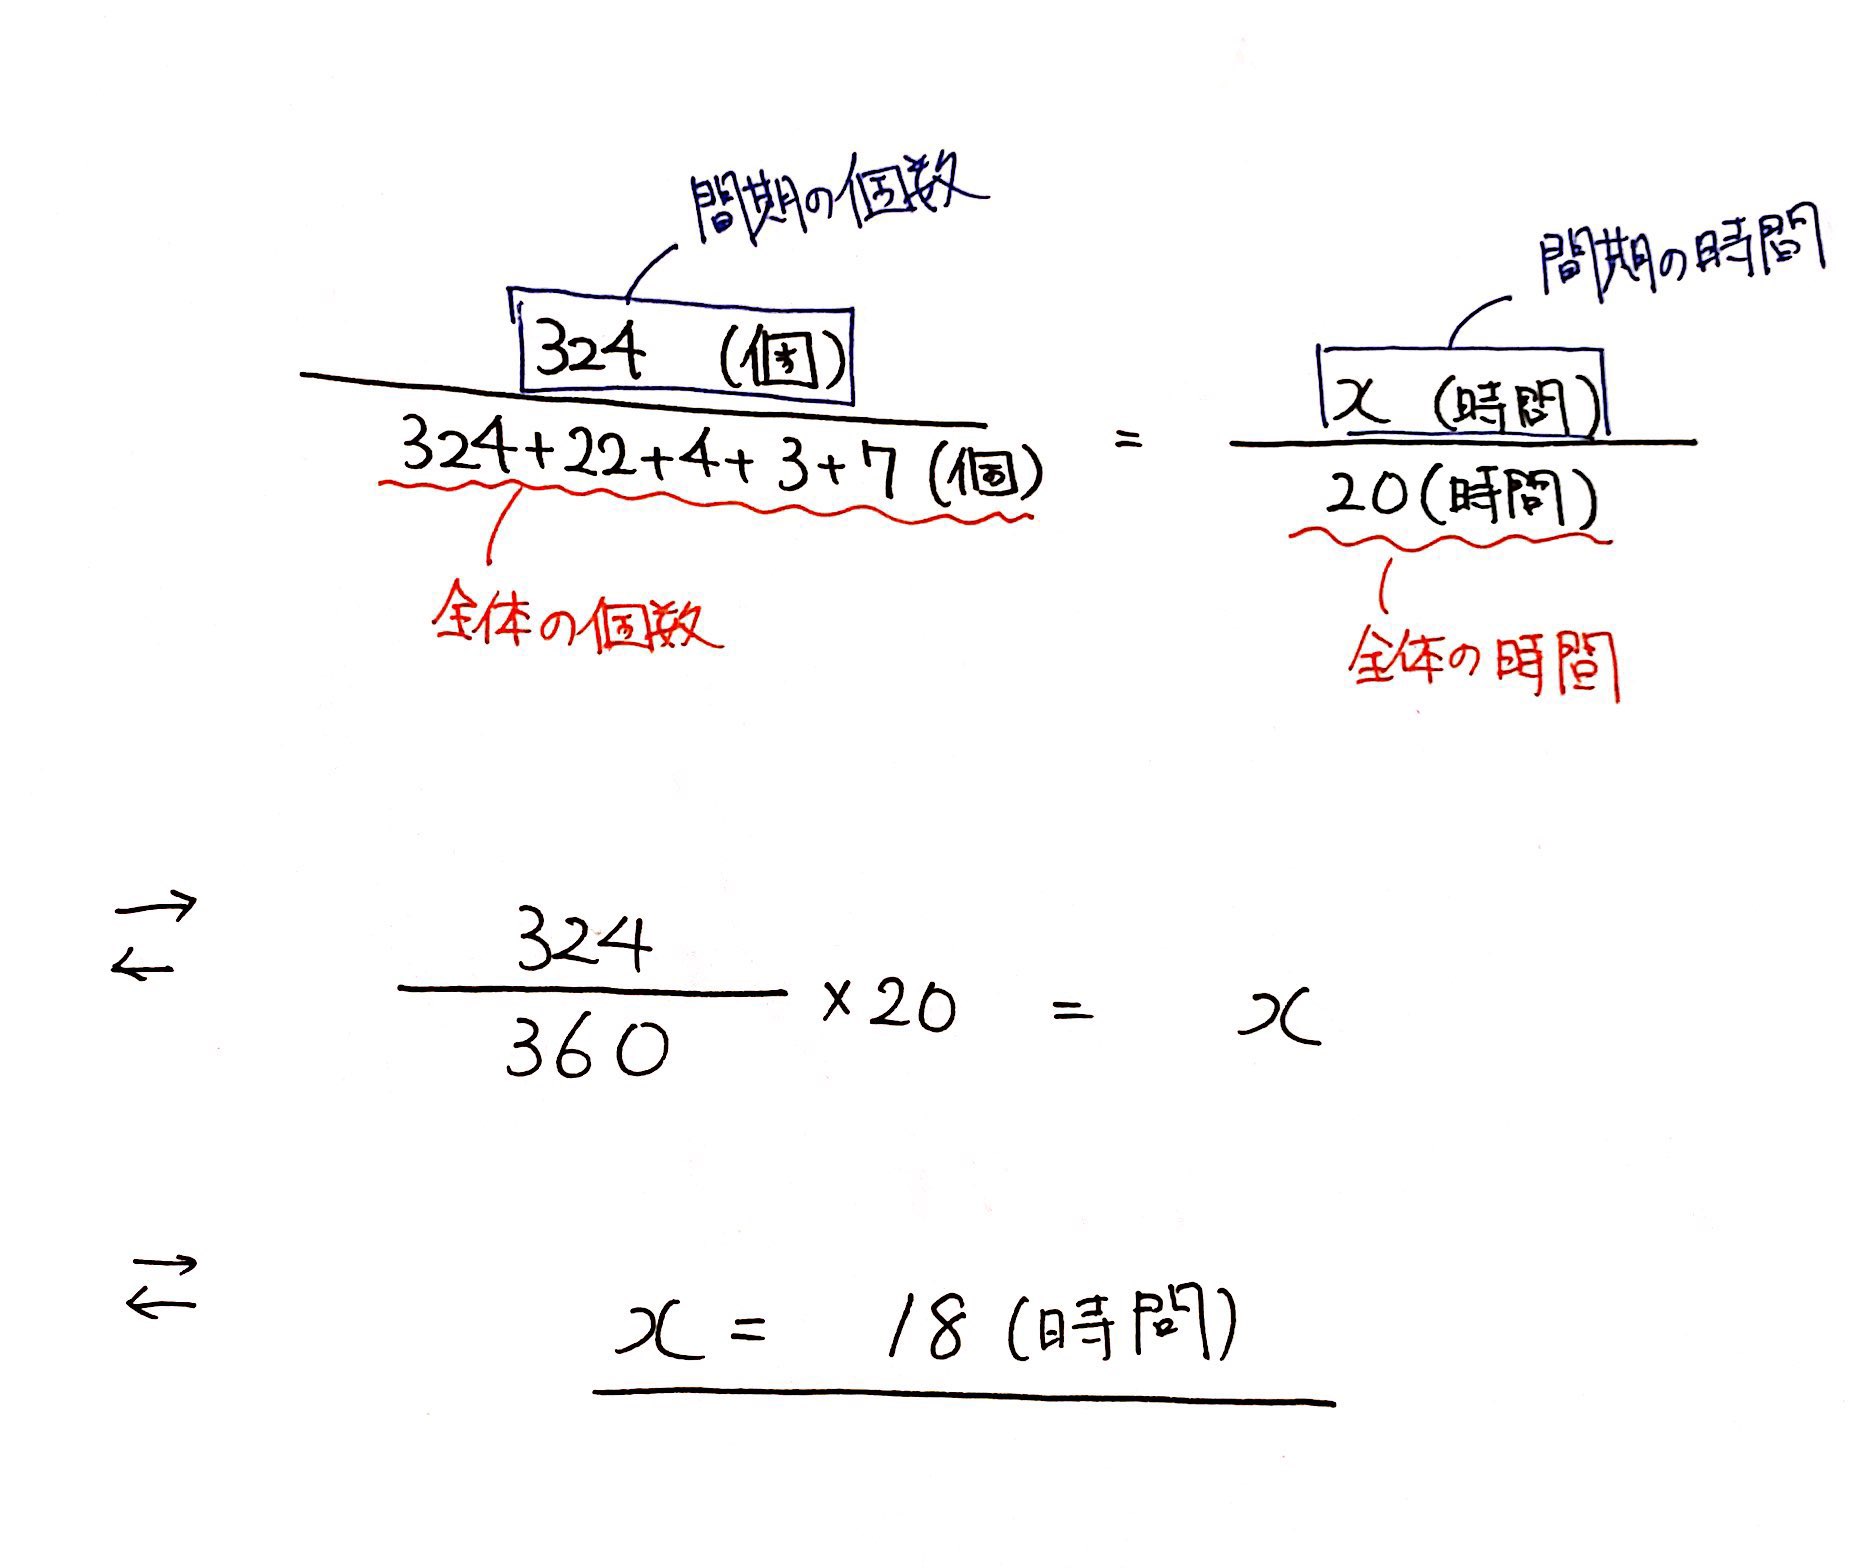 間期の個数
間期の時間
324 (個)
x (時間)
324+22+4+3+7 (個)
=
20(時間)
全体の個数
全体の時間
324
360
×20 = x
x = 18 (時間)